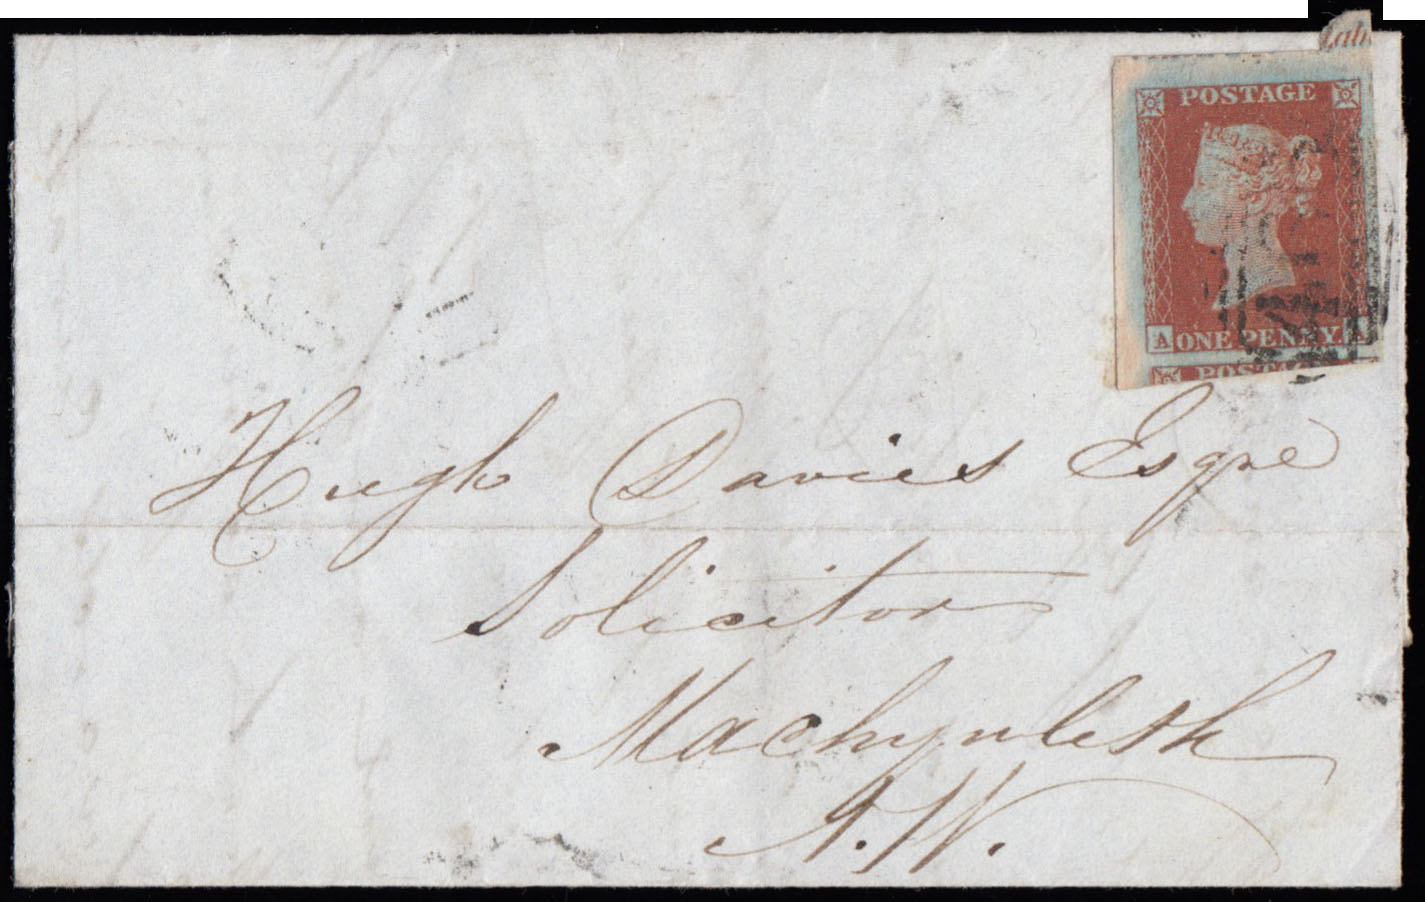 POSTAGE
A ONE PENNY. A
POSTAG
Hugh Davies Esqre
Solicitor
Machynlleth
N.W.